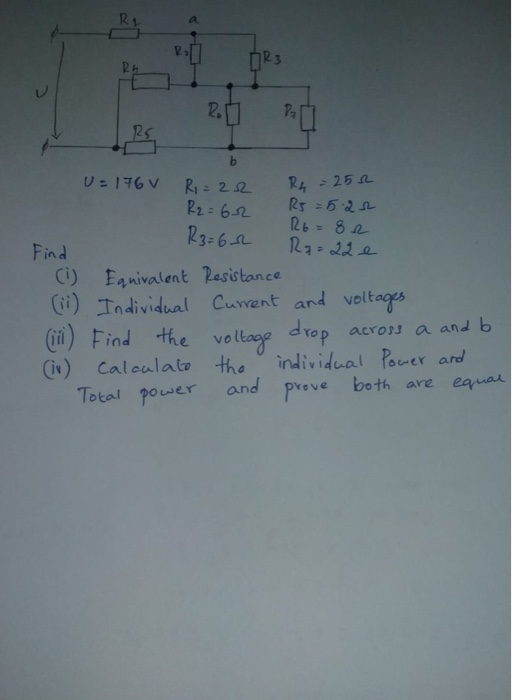 R1 a
R2 R3
R4
U R6 R7
R5
b
U = 176 V R1 = 2 Ω R4 = 25 Ω
R2 = 6 Ω R5 = 5.2 Ω
R3 = 6 Ω R6 = 8 Ω
Find R7 = 22 Ω
(i) Equivalent Resistance
(ii) Individual Current and voltages
(iii) Find the voltage drop across a and b
(iv) Calculate the individual Power and
Total power and prove both are equal